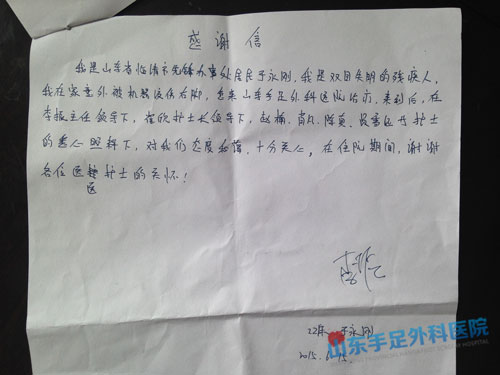 感谢信
我是山东省临清市先锋办事处居民于永刚,我是双目失明的残疾人,
我在家意外被机器误伤右脚,急来山东手足外科医院治疗,来到后,在
李振主任领导下,崔欣护士长领导下,赵楠、肖凡、陈英、护士
的悉心照料下,对我们态度和蔼,十分关心,在住院期间,谢谢
各位医护士的关怀!
医
22床 于永刚
2015.
山东手足外科医院